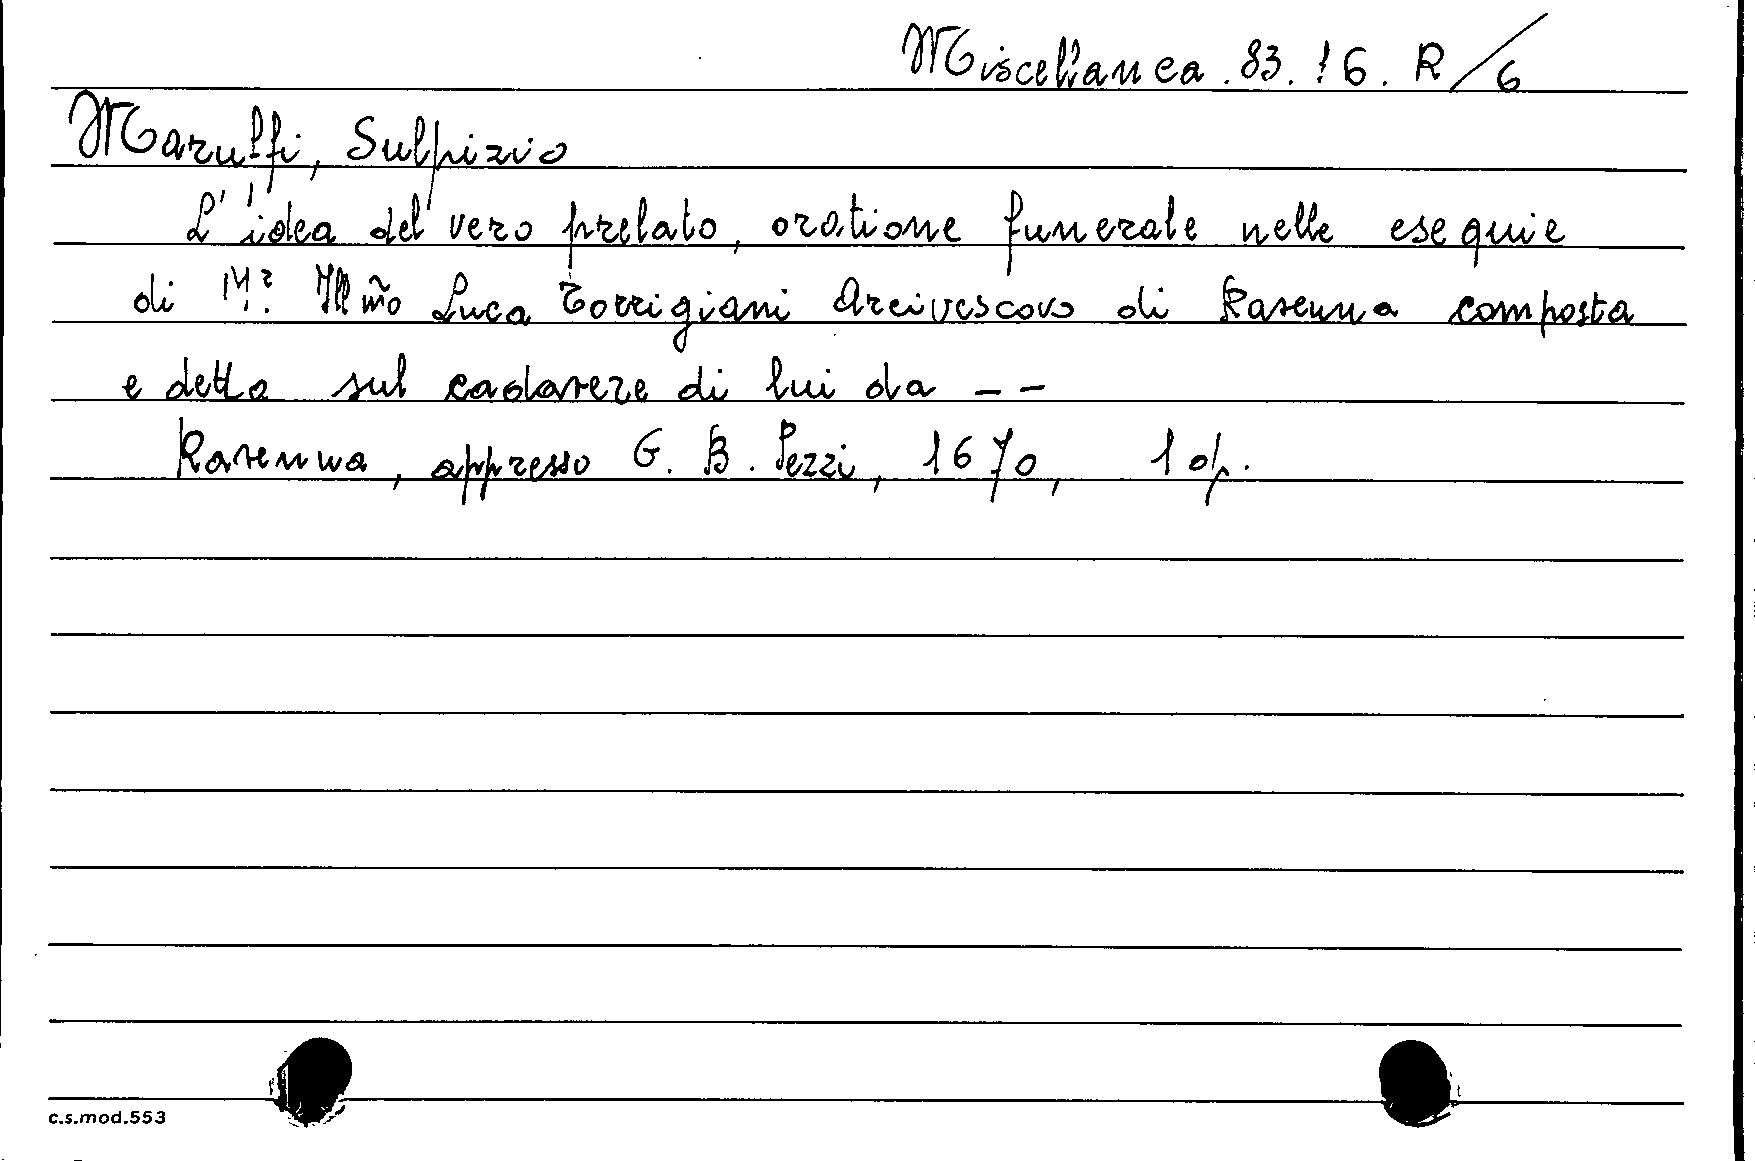 Miscellanea. 83. 16. R/6
Maruffi, Sulpizio
L'idea del vero prelato, oratione funerale nelle esequie
di M.r Ill.mõ Luca Torrigiani Arcivescovo di Ravenna composta
e detta sul cadavere di lui da --
Ravenna, appresso G. B. Pezzi, 1670, 1 op.
c.s.mod.553